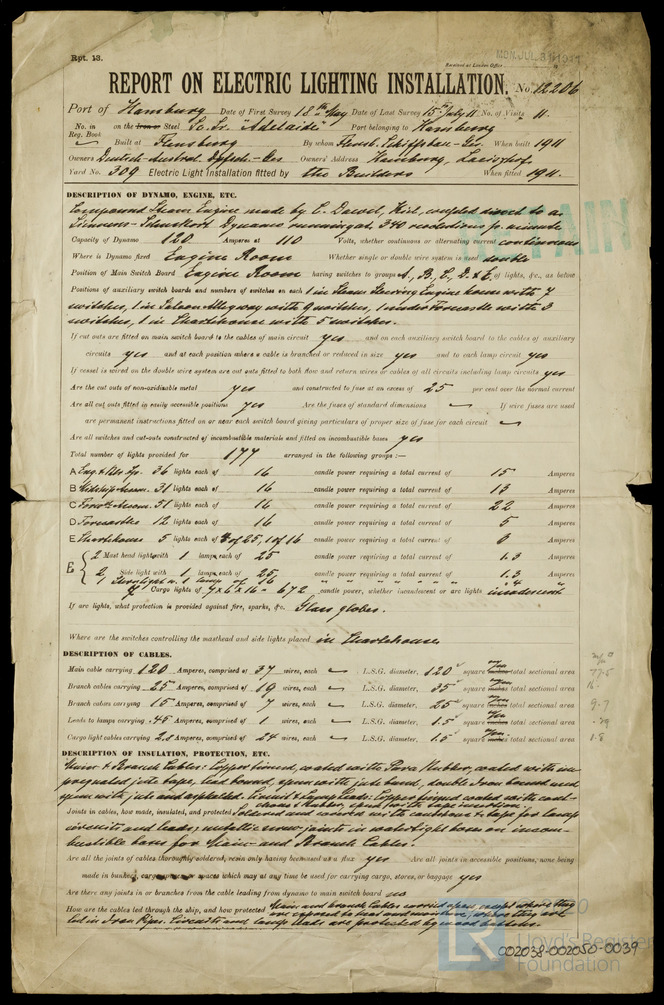 Rpt. 13.
Received at London Office
MON. JUL 31 1911
REPORT ON ELECTRIC LIGHTING INSTALLATION. No. 12206
Port of Hamburg Date of First Survey 18th May Date of Last Survey 15th July 11 No. of Visits 11.
No. in Reg. Book on the Iron or Steel Sc. Sr. "Adelaide" Port belonging to Hamburg
Built at Flensburg By whom Flensb. Schiffsbau-Ges. When built 1911
Owners Deutsch-Austral. Dpfsch.-Ges Owners' Address Hamburg, Laeiszhof
Yard No. 309 Electric Light Installation fitted by the Builders When fitted 1911.
DESCRIPTION OF DYNAMO, ENGINE, ETC.
Compound Steam Engine made by C. Daevel, Kiel, coupled direct to a
Siemens-Schuckert Dynamo running at 340 revolutions pr. minute
Capacity of Dynamo 120 Amperes at 110 Volts, whether continuous or alternating current continuous
Where is Dynamo fixed Engine Room Whether single or double wire system is used double
Position of Main Switch Board Engine Room having switches to groups A, B, C, D & E of lights, &c., as below
Positions of auxiliary switch boards and numbers of switches on each 1 in Steam Steering Engine house with 7
switches, 1 in Saloon Alleyway with 9 switches, 1 under Forecastle with 3
switches, 1 in Charthouse with 5 switches.
If cut outs are fitted on main switch board to the cables of main circuit yes and on each auxiliary switch board to the cables of auxiliary
circuits yes and at each position where a cable is branched or reduced in size yes and to each lamp circuit yes
If vessel is wired on the double wire system are cut outs fitted to both flow and return wires or cables of all circuits including lamp circuits yes
Are the cut outs of non-oxidizable metal yes and constructed to fuse at an excess of 25 per cent over the normal current
Are all cut outs fitted in easily accessible positions yes Are the fuses of standard dimensions If wire fuses are used
are permanent instructions fitted on or near each switch board giving particulars of proper size of fuse for each circuit
Are all switches and cut-outs constructed of incombustible materials and fitted on incombustible bases yes
Total number of lights provided for 177 arranged in the following groups :—
A Eng. & Blr. Sp. 36 lights each of 16 candle power requiring a total current of 15 Amperes
B Midship Accom. 31 lights each of 16 candle power requiring a total current of 13 Amperes
C Forw. Accom. 51 lights each of 16 candle power requiring a total current of 22 Amperes
D Forecastle 12 lights each of 16 candle power requiring a total current of 5 Amperes
E Charthouse 5 lights each of 4 of 25, 1 of 16 candle power requiring a total current of 3 Amperes
E 2 Mast head light with 1 lamps each of 25 candle power requiring a total current of 1.3 Amperes
2 Side light with 1 lamps each of 25 candle power requiring a total current of 1.3 Amperes
1 Sternlight w. 1 lamp of 16 " " " " " " .4 "
7 Cargo lights of 7x6x16 = 672 candle power, whether incandescent or arc lights incandescent
If arc lights, what protection is provided against fire, sparks, &c. Glass globes.
Where are the switches controlling the masthead and side lights placed in Charthouse
DESCRIPTION OF CABLES.
Main cable carrying 120 Amperes, comprised of 37 wires, each L.S.G. diameter, 120 square inches total sectional area
Branch cables carrying 25 Amperes, comprised of 19 wires, each L.S.G. diameter, 35 square inches total sectional area
Branch cables carrying 15 Amperes, comprised of 7 wires, each L.S.G. diameter, 25 square inches total sectional area
Leads to lamps carrying .45 Amperes, comprised of 1 wires, each L.S.G. diameter, 1.5 square inches total sectional area
Cargo light cables carrying Amperes, comprised of 24 wires, each L.S.G. diameter, 1.5 square inches total sectional area
DESCRIPTION OF INSULATION, PROTECTION, ETC.
Main & Branch Cables: Copper tinned, coated with Para Rubber, coated with im-
pregnated jute tape, lead bound, spun with jute band, double Iron bound and
spun with jute and asphalted. Circuit & Lamp Leads: Copper tinned coated with caout-
chouc & Rubber, spun with tape
Joints in cables, how made, insulated, and protected Soldered and covered with caoutchouc & tape for lamp
circuits and leads; metallic screw joints in watertight boxes on incom-
bustible bases for Main and Branch Cables.
Are all the joints of cables thoroughly soldered, resin only having been used as a flux yes Are all joints in accessible positions, none being
made in bunkers, cargo spaces or spaces which may at any time be used for carrying cargo, stores, or baggage yes
Are there any joints in or branches from the cable leading from dynamo to main switch board no
How are the cables led through the ship, and how protected Main and branch Cables carried open, except where they
are exposed to heat and moisture, where they are
led in Iron Pipes. Circuits and lamp leads are protected by wood battens.
LR Lloyd's Register
Foundation
002038-002050-0039